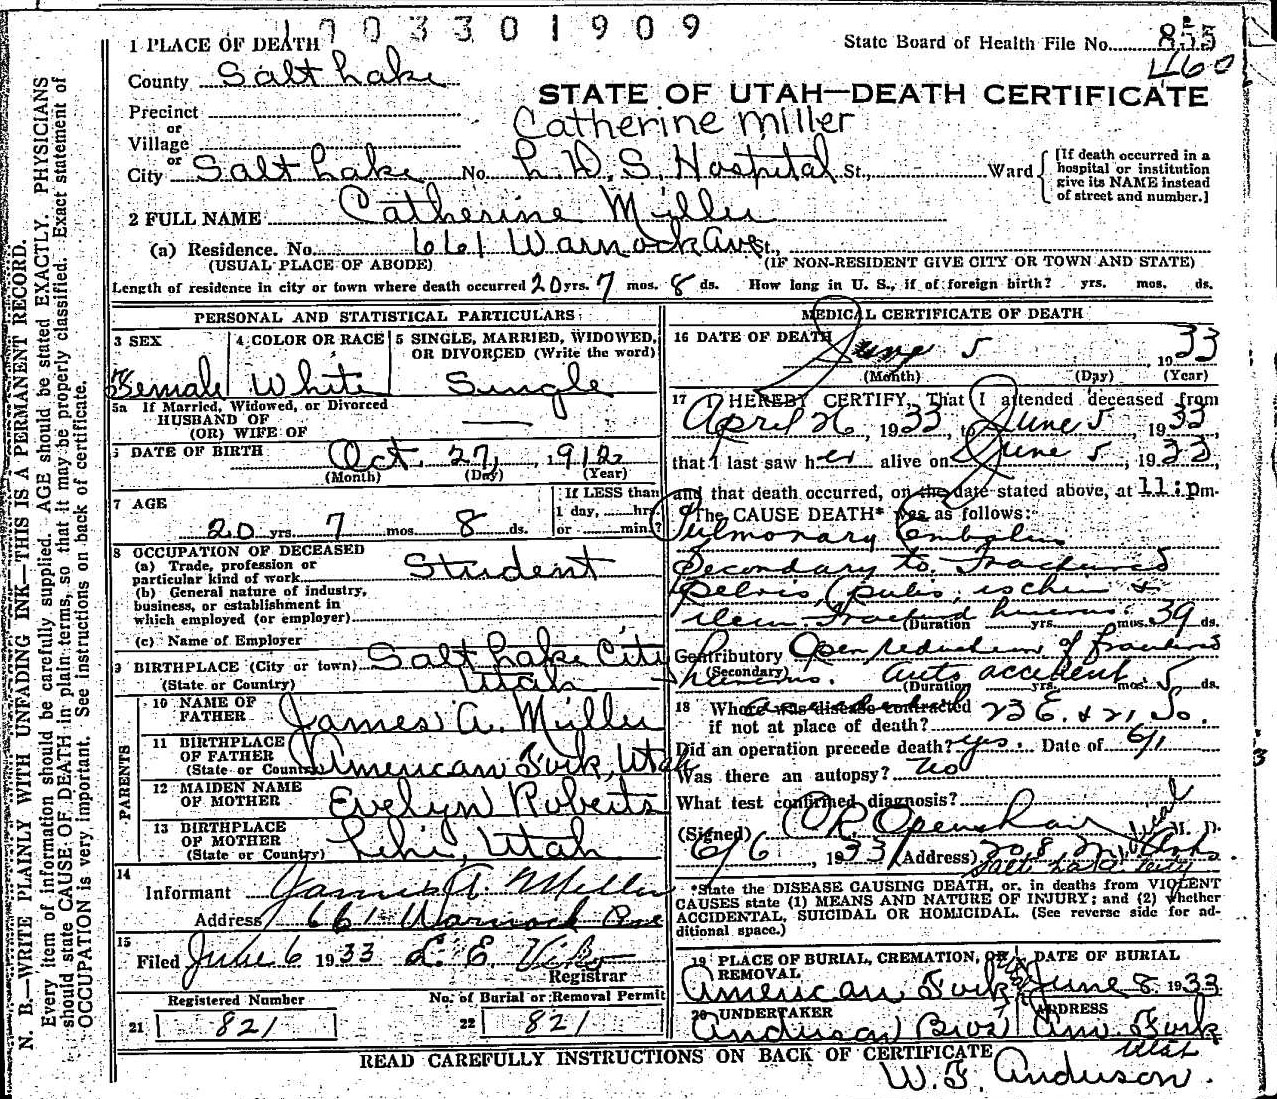 1703301909
1 PLACE OF DEATH
State Board of Health File No. 855
460
County Salt Lake
STATE OF UTAH—DEATH CERTIFICATE
Precinct
or
Village
Catherine Miller
or
City Salt Lake No. L. D. S. Hospital St., Ward
[If death occurred in a hospital or institution give its NAME instead of street and number.]
2 FULL NAME Catherine Miller
(a) Residence. No. 661 Warnock Ave St.,
(USUAL PLACE OF ABODE) (IF NON-RESIDENT GIVE CITY OR TOWN AND STATE)
Length of residence in city or town where death occurred 20 yrs. 7 mos. 8 ds. How long in U. S., if of foreign birth? yrs. mos. ds.
PERSONAL AND STATISTICAL PARTICULARS
3 SEX 4 COLOR OR RACE 5 SINGLE, MARRIED, WIDOWED, OR DIVORCED (Write the word)
Female White Single
5a If Married, Widowed, or Divorced
HUSBAND OF
(OR) WIFE OF
6 DATE OF BIRTH Oct. 27, 1912
(Month) (Day) (Year)
7 AGE
If LESS than
1 day, hrs.
20 yrs. 7 mos. 8 ds. or min.?
8 OCCUPATION OF DECEASED
(a) Trade, profession or
particular kind of work Student
(b) General nature of industry,
business, or establishment in
which employed (or employer)
(c) Name of Employer
9 BIRTHPLACE (City or town) Salt Lake City
(State or Country) Utah
PARENTS
10 NAME OF FATHER James A. Miller
11 BIRTHPLACE OF FATHER (State or Country) American Fork, Utah
12 MAIDEN NAME OF MOTHER Evelyn Roberts
13 BIRTHPLACE OF MOTHER (State or Country) Lehi, Utah
14
Informant James A. Miller
Address 661 Warnock Ave
15
Filed June 6 1933 L. E.
Registrar
Registered Number No. of Burial or Removal Permit
21 821 22 821
MEDICAL CERTIFICATE OF DEATH
16 DATE OF DEATH June 5 1933
(Month) (Day) (Year)
17 I HEREBY CERTIFY, That I attended deceased from
April 26, 1933, to June 5, 1933,
that I last saw her alive on June 5, 1933,
and that death occurred, on the date stated above, at 11:pm.
The CAUSE DEATH* was as follows:
Pulmonary Embolus
Secondary to Fractured
Pelvis, (pubis, ischium &
ilium. Fractured humerus.
(Duration yrs. mos. 39 ds.
Contributory Open reduction of fractured
(Secondary) humerus. Auto accident
(Duration yrs. mos. 5 ds.
18 Where was disease contracted
if not at place of death? 23 E. & 21 So.
Did an operation precede death? yes. Date of 6/1
Was there an autopsy? No
What test confirmed diagnosis?
(Signed) O R Openshaw M. D.
6/6, 1933 (Address) Medical
Salt Lake City
*State the DISEASE CAUSING DEATH, or, in deaths from VIOLENT
CAUSES state (1) MEANS AND NATURE OF INJURY; and (2) whether
ACCIDENTAL, SUICIDAL OR HOMICIDAL. (See reverse side for ad-
ditional space.)
19 PLACE OF BURIAL, CREMATION, OR REMOVAL DATE OF BURIAL
American Fork June 8 1933
20 UNDERTAKER ADDRESS
Anderson Bros Am. Fork
Utah
READ CAREFULLY INSTRUCTIONS ON BACK OF CERTIFICATE
W. F. Anderson.
N. B.—WRITE PLAINLY WITH UNFADING INK—THIS IS A PERMANENT RECORD.
Every item of information should be carefully supplied. AGE should be stated EXACTLY. PHYSICIANS
should state CAUSE OF DEATH in plain terms, so that it may be properly classified. Exact statement of
OCCUPATION is very important. See instructions on back of certificate.
3